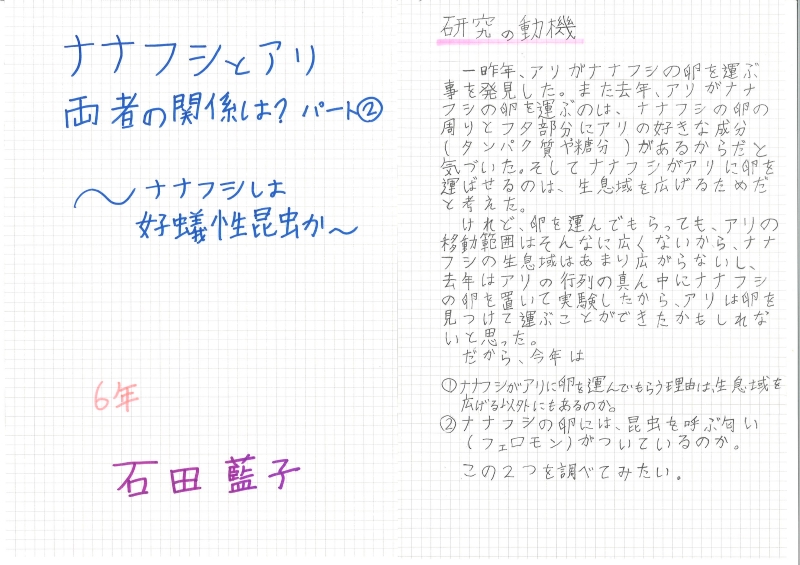 ナナフシとアリ
両者の関係は? パート②
〜ナナフシは
好蟻性昆虫か〜
6年
石田藍子
研究の動機
一昨年、アリがナナフシの卵を運ぶ
事を発見した。また去年、アリがナナ
フシの卵を運ぶのは、ナナフシの卵の
周りとフタ部分にアリの好きな成分
(タンパク質や糖分)があるからだと
気づいた。そしてナナフシがアリに卵を
運ばせるのは、生息域を広げるためだ
と考えた。
けれど、卵を運んでもらっても、アリの
移動範囲はそんなに広くないから、ナナ
フシの生息域はあまり広がらないし、
去年はアリの行列の真ん中にナナフシ
の卵を置いて実験したから、アリは卵を
見つけて運ぶことができたかもしれな
いと思った。
だから、今年は
①ナナフシがアリに卵を運んでもらう理由は、生息域を
広げる以外にもあるのか。
②ナナフシの卵には、昆虫を呼ぶ匂い
(フェロモン)がついているのか。
この2つを調べてみたい。